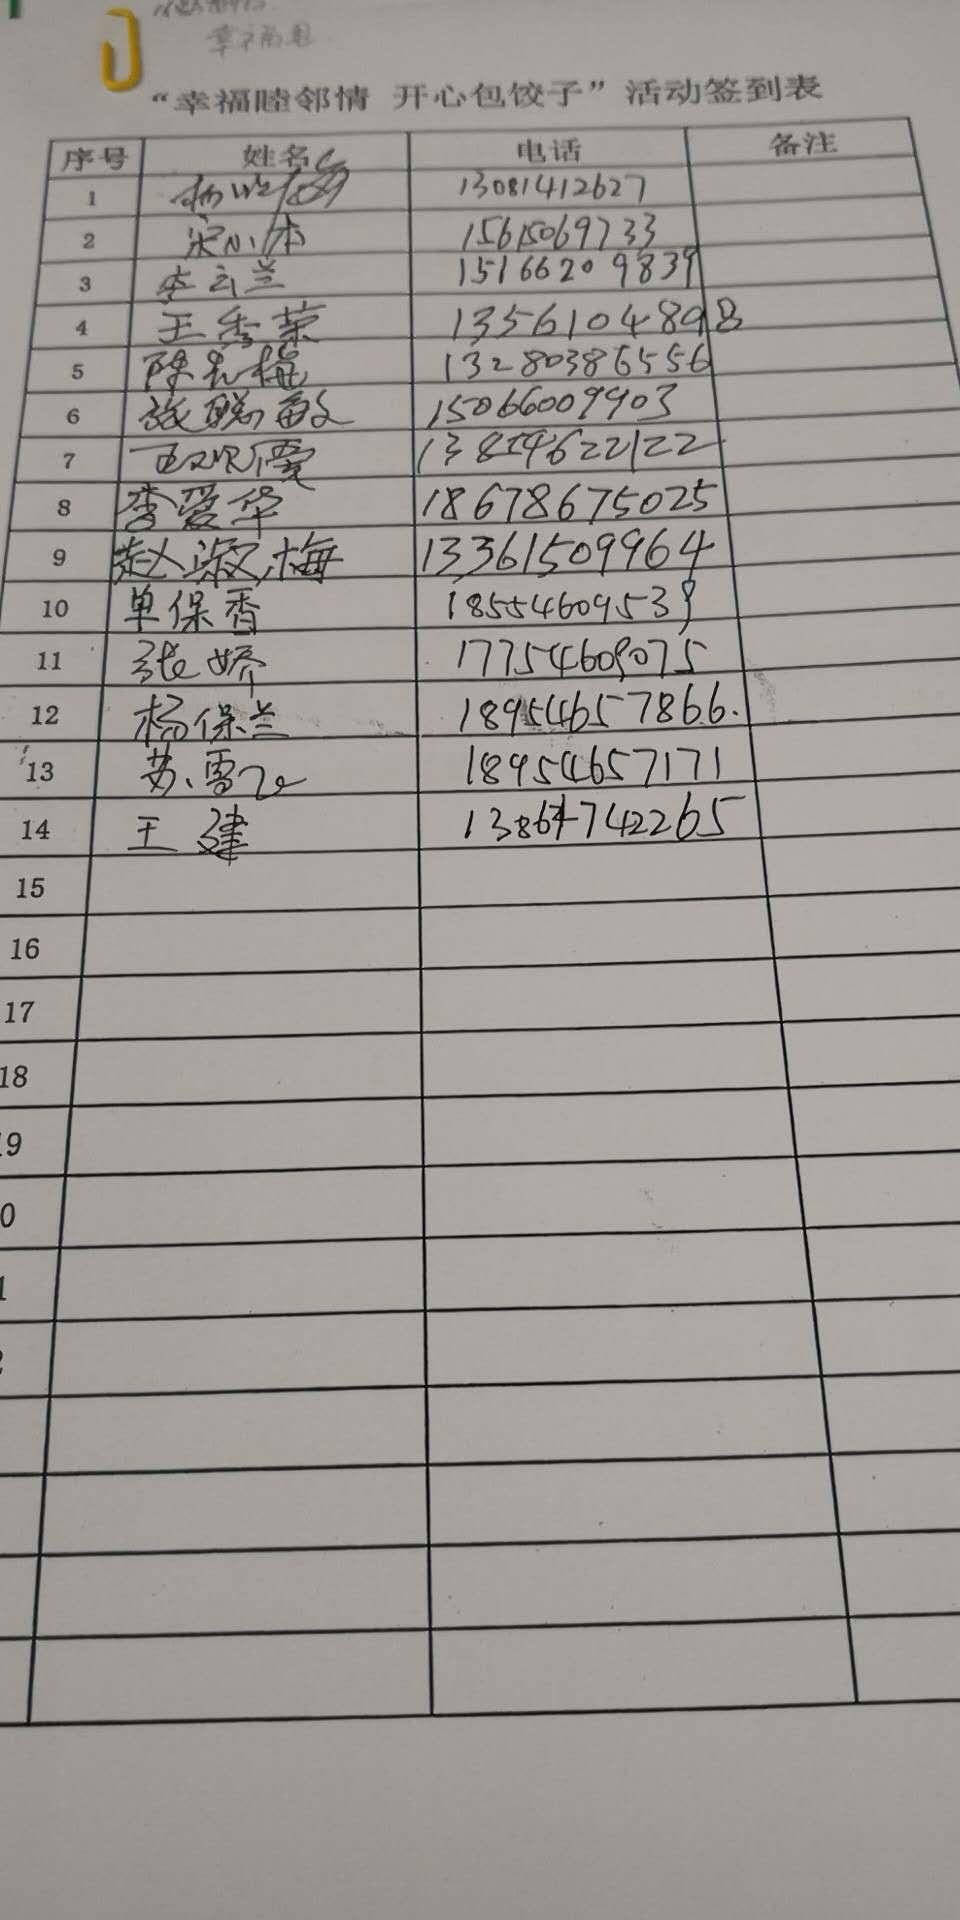 幸福
"幸福睦邻情 开心包饺子"活动签到表
序号 姓名 电话 备注
1 13081412627
2 宋小本 15615069733
3 李云兰 15166209839
4 王秀荣 13561048498
5 陈 梅 13280386556
6 张聪敏 15066009903
7 霞 13854622122
8 李爱华 18678675025
9 赵淑梅 13361509964
10 单保香 18554609539
11 张娇 17754609075
12 杨保兰 18954657866.
13 苏雪 18954657171
14 王建 13864742265
15
16
17
18